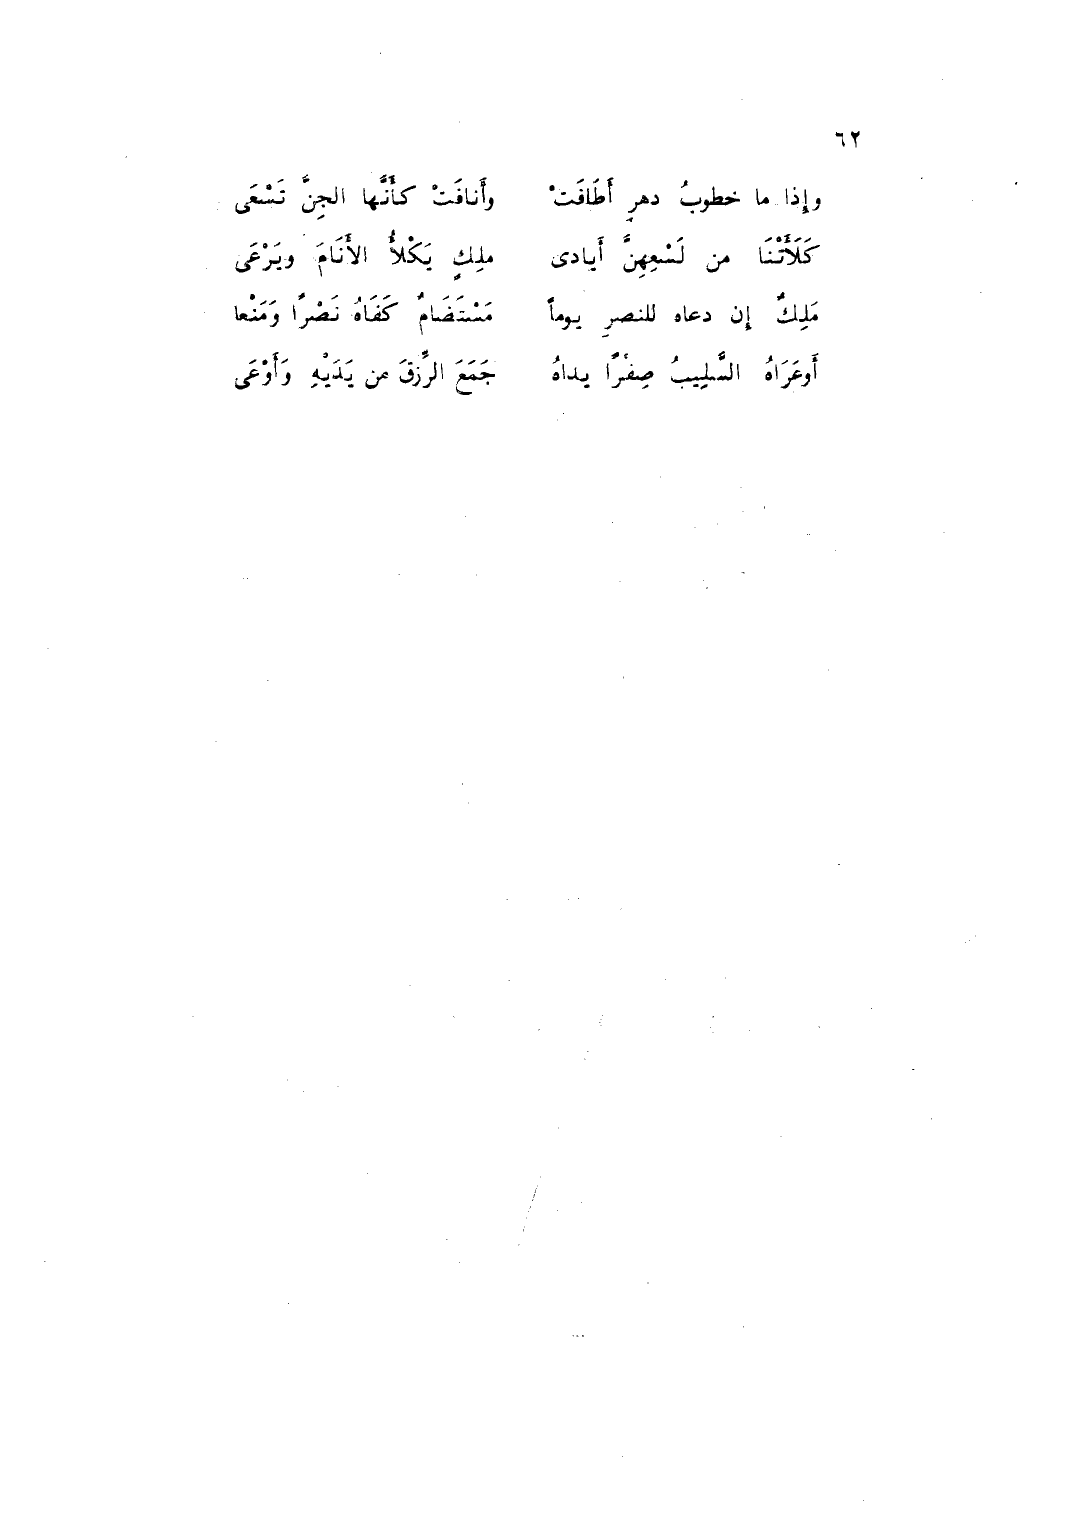 ٦٢
وإِذا ما خطوبُ دهرٍ أَطَافَتْ وأَنافَتْ كأَنَّها الجِنَّ تَسْعَى
كَلَأَتْنَا من لَسْعِهِنَّ أَيادى ملِكٍ يَكْلأُ الأَنَامَ ويَرْعَى
مَلِكٌ إِن دعاه للنصرِ يوماً مَسْتَضَامٌ كَفَاهُ نَصْرًا وَمَنْعا
أَوعَرَاهُ السَّلِيبُ صِفْرًا يداهُ جَمَعَ الرِّزقَ من يَدَيْهِ وَأَوْعَى